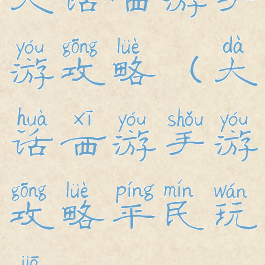 大话西游手
yóu gōng lüè dà
游攻略(大
huà xī yóu shǒu yóu
话西游手游
gōng lüè píng mín wán
攻略平民玩